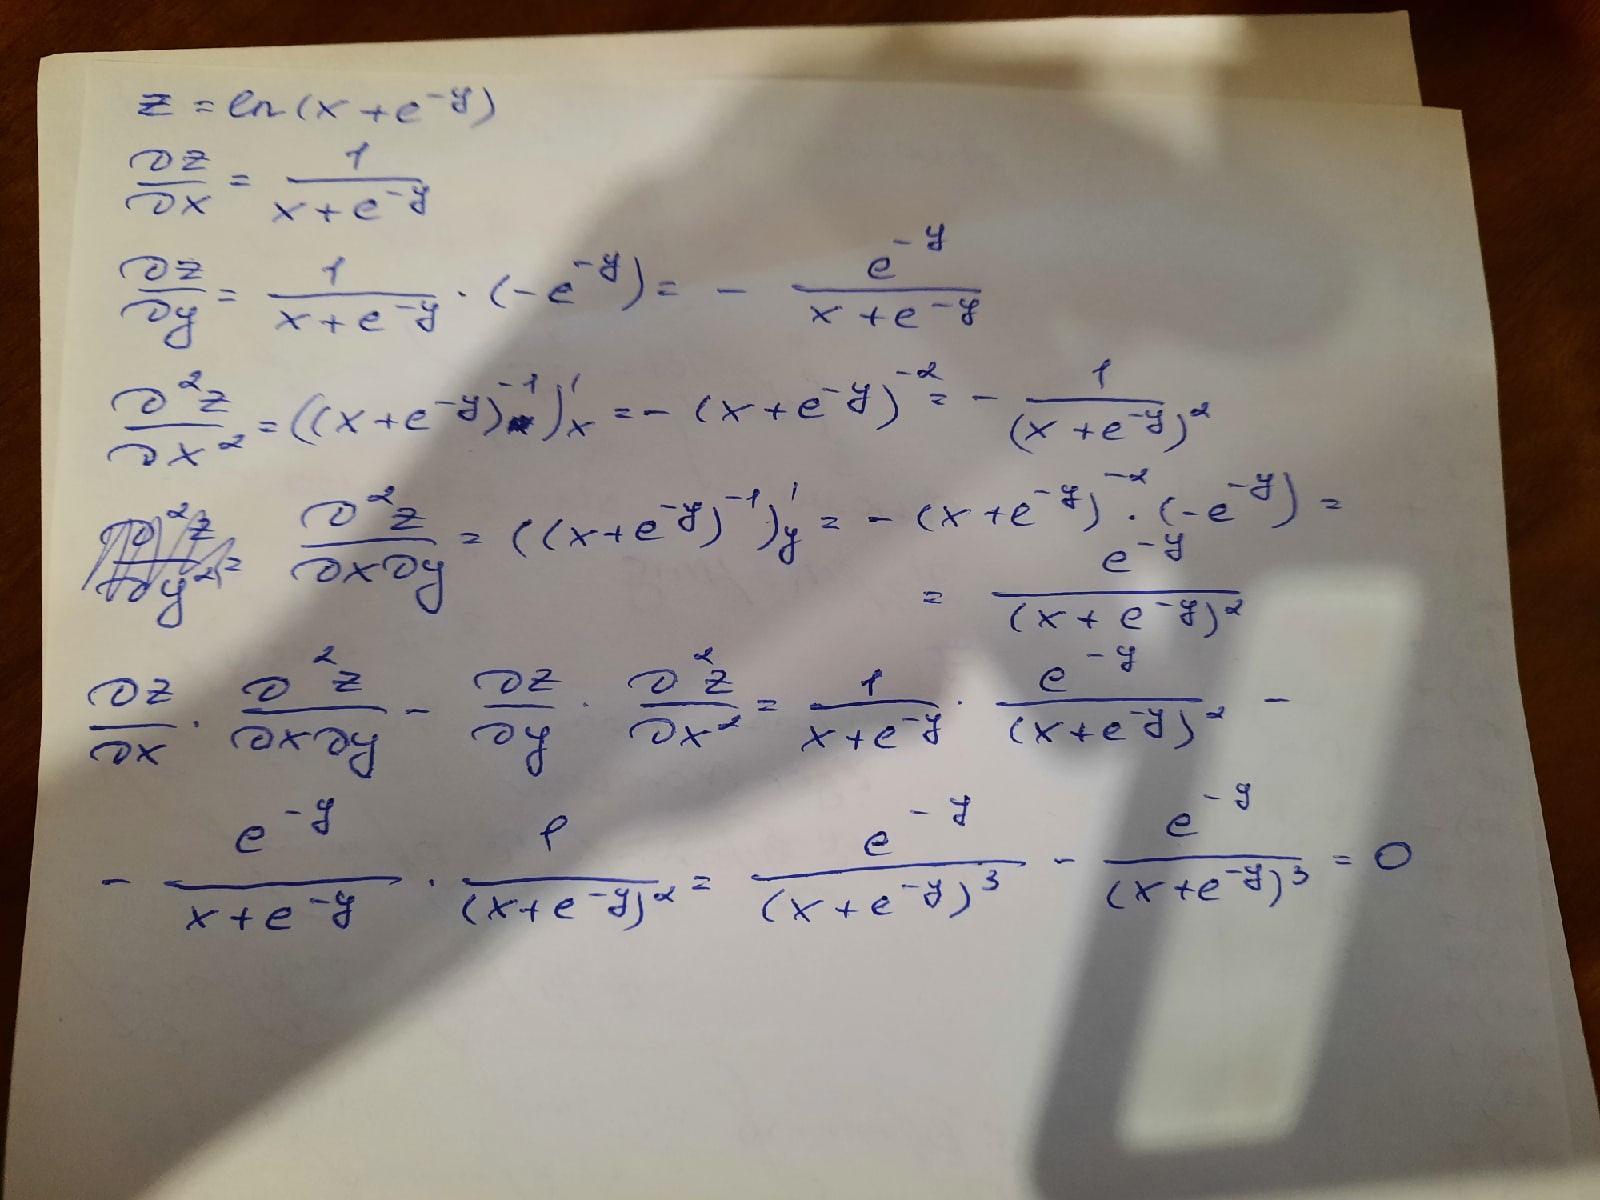 z = ln(x + e^{-y})
∂z/∂x = 1/(x + e^{-y})
∂z/∂y = 1/(x + e^{-y}) · (-e^{-y}) = - e^{-y}/(x + e^{-y})
∂²z/∂x² = ((x + e^{-y})^{-1})'_x = -(x + e^{-y})^{-2} = - 1/(x + e^{-y})²
∂²z/∂y² = ∂²z/∂x∂y = ((x + e^{-y})^{-1})'_y = -(x + e^{-y})^{-2} · (-e^{-y}) =
= e^{-y}/(x + e^{-y})²
∂z/∂x · ∂²z/∂x∂y - ∂z/∂y · ∂²z/∂x² = 1/(x + e^{-y}) · e^{-y}/(x + e^{-y})² -
- e^{-y}/(x + e^{-y}) · 1/(x + e^{-y})² = e^{-y}/(x + e^{-y})³ - e^{-y}/(x + e^{-y})³ = 0